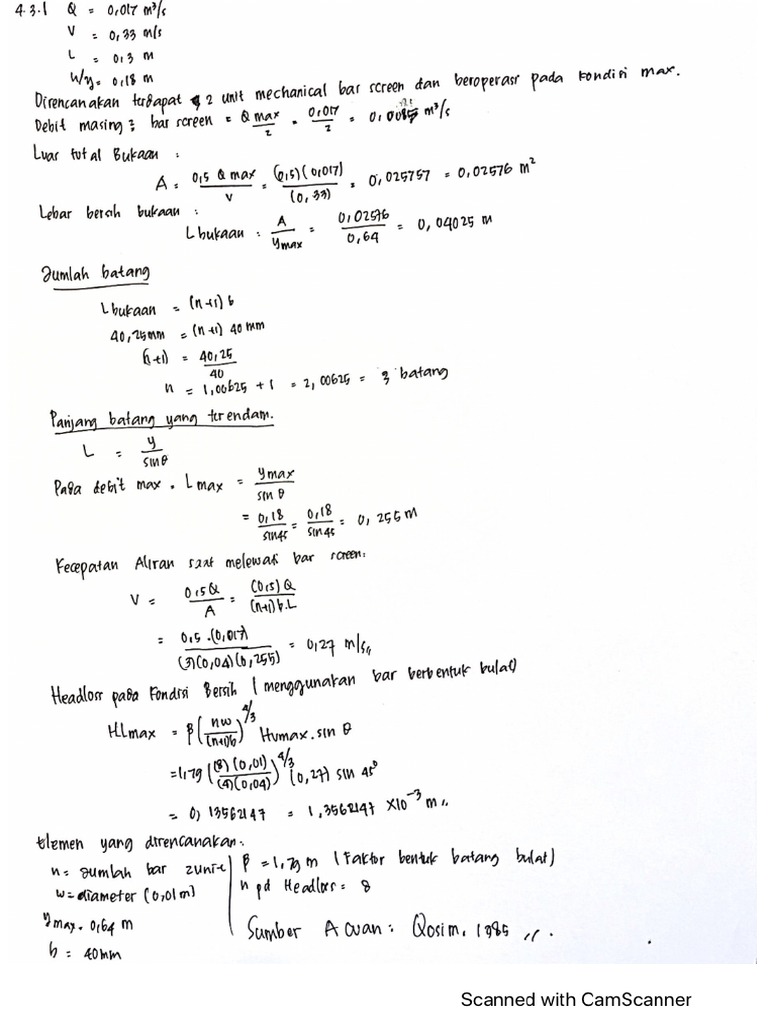 4.3.1 Q = 0,017 m³/s
V = 0,33 m/s
L = 0,3 m
Wy = 0,18 m
Direncanakan terdapat 2 unit mechanical bar screen dan beroperasi pada kondisi max.
Debit masing² bar screen = Q max/2 = 0,017/2 = 0,0085 m³/s
Luas total Bukaan :
A = 0,5 Q max/V = (0,5)(0,017)/(0,33) = 0,025757 = 0,02576 m²
Lebar bersih bukaan :
L bukaan : A/ymax = 0,02576/0,64 = 0,04025 m
Jumlah batang
L bukaan = (n+1) b
40,25 mm = (n+1) 40 mm
(n+1) = 40,25/40
n = 1,00625 + 1 = 2,00625 = 3 batang
Panjang batang yang terendam.
L = y/sin θ
Pada debit max. L max = ymax/sin θ
= 0,18/sin45 = 0,18/sin45 = 0,255 m
Kecepatan Aliran saat melewati bar screen:
V = 0,5Q/A = (0,5)Q/(n+1)b.L
= 0,5.(0,017)/(3)(0,04)(0,255) = 0,27 m/s
Headloss pada Kondisi Bersih (menggunakan bar berbentuk bulat)
HLmax = β(nw/(n+1)b)^4/3 Hvmax. sin θ
= 1,79 ((8)(0,01)/(4)(0,04))^4/3 (0,27) sin 45°
= 0,13562147 = 1,3562147 x10⁻³ m
Elemen yang direncanakan:
n = Jumlah bar 2unit
w = diameter (0,01m)
ymax = 0,64 m
b = 40mm
β = 1,79 m (Faktor bentuk batang bulat)
n pd Headloss = 8
Sumber Acuan : Qosim, 1985
Scanned with CamScanner